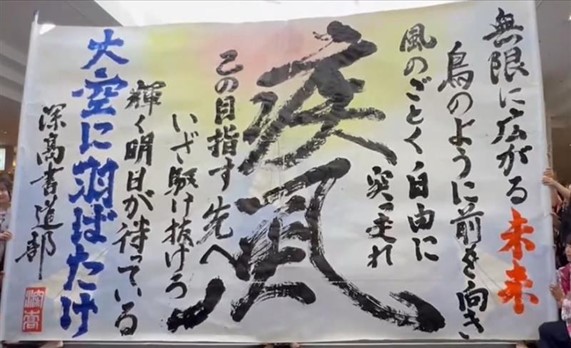 無限に広がる未来
鳥のように前を向き
風のごとく自由に
突っ走れ
疾風
この目指す先へ
いざ駆け抜けろ
輝く明日が待っている
大空に羽ばたけ
深高書道部